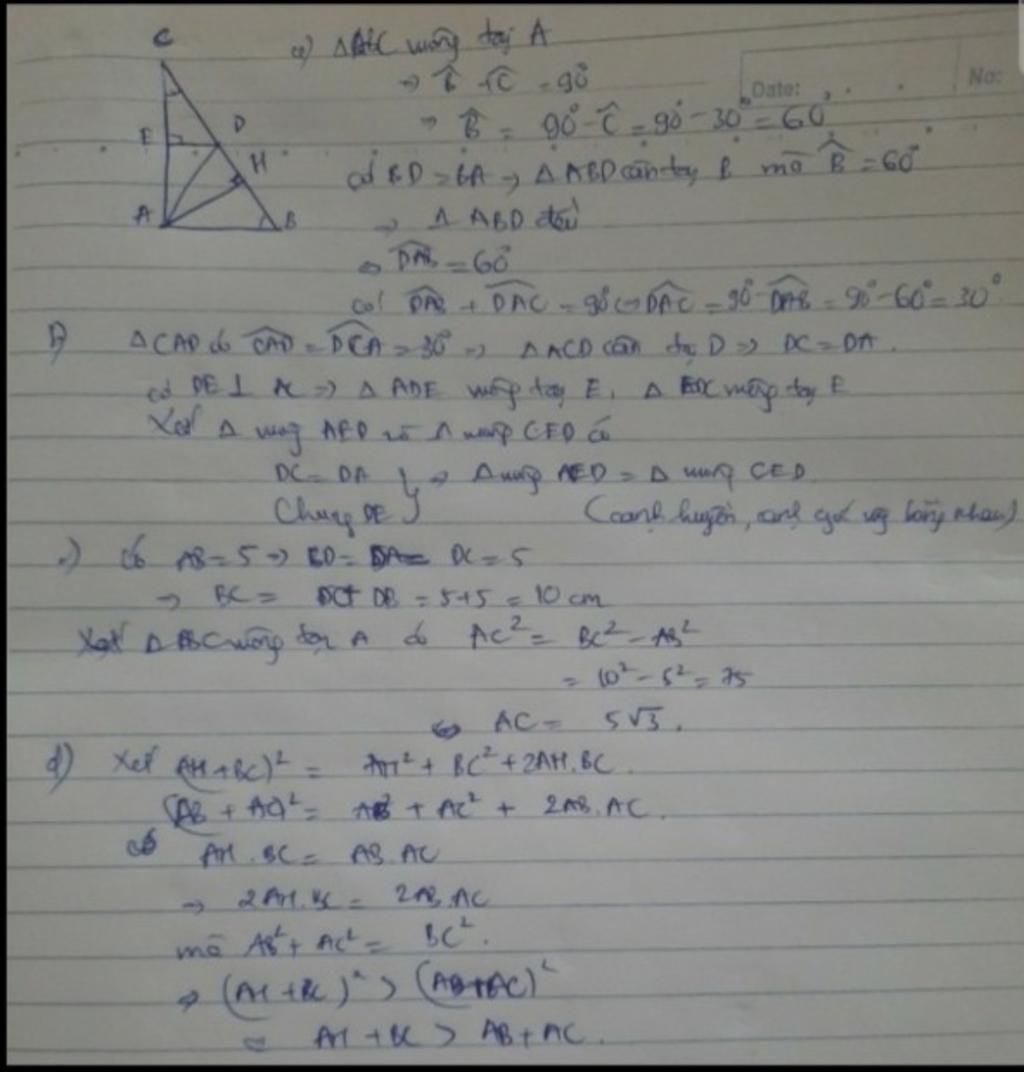 C
E
D
H
A
B
Date:
No:
a) ΔABC vuông tại A
→ B̂ + Ĉ = 90°
→ B̂ = 90° - Ĉ = 90° - 30° = 60°
có BD = BA → ΔABD cân tại B mà B̂ = 60°
→ Δ ABD đều
⇔ DAB̂ = 60°
có DAB̂ + DAĈ = 90° ⇔ DAĈ = 90° - DAB̂ = 90° - 60° = 30°
b) ΔCAD có CAD̂ = DCÂ = 30° → ΔACD cân tại D ⇒ DC = DA.
có DE ⊥ AC ⇒ Δ ADE vuông tại E, Δ EDC vuông tại E
Xét Δ vuông AED và Δ vuông CED có
DC = DA } → Δ vuông AED = Δ vuông CED
Chung DE } (cạnh huyền, cạnh góc vg bằng nhau)
c) Có AB = 5 → BD = DA = DC = 5
→ BC = DC + DB = 5+5 = 10 cm
Xét ΔABC vuông tại A có AC² = BC² - AB²
= 10² - 5² = 75
⇔ AC = 5√3.
d) Xét (AH+BC)² = AH² + BC² + 2AH.BC.
(AB + AC)² = AB² + AC² + 2AB.AC.
có AH.BC = AB.AC
→ 2AH.BC = 2AB.AC
mà AB² + AC² = BC².
⇒ (AH+BC)² > (AB+AC)²
= AH + BC > AB + AC.